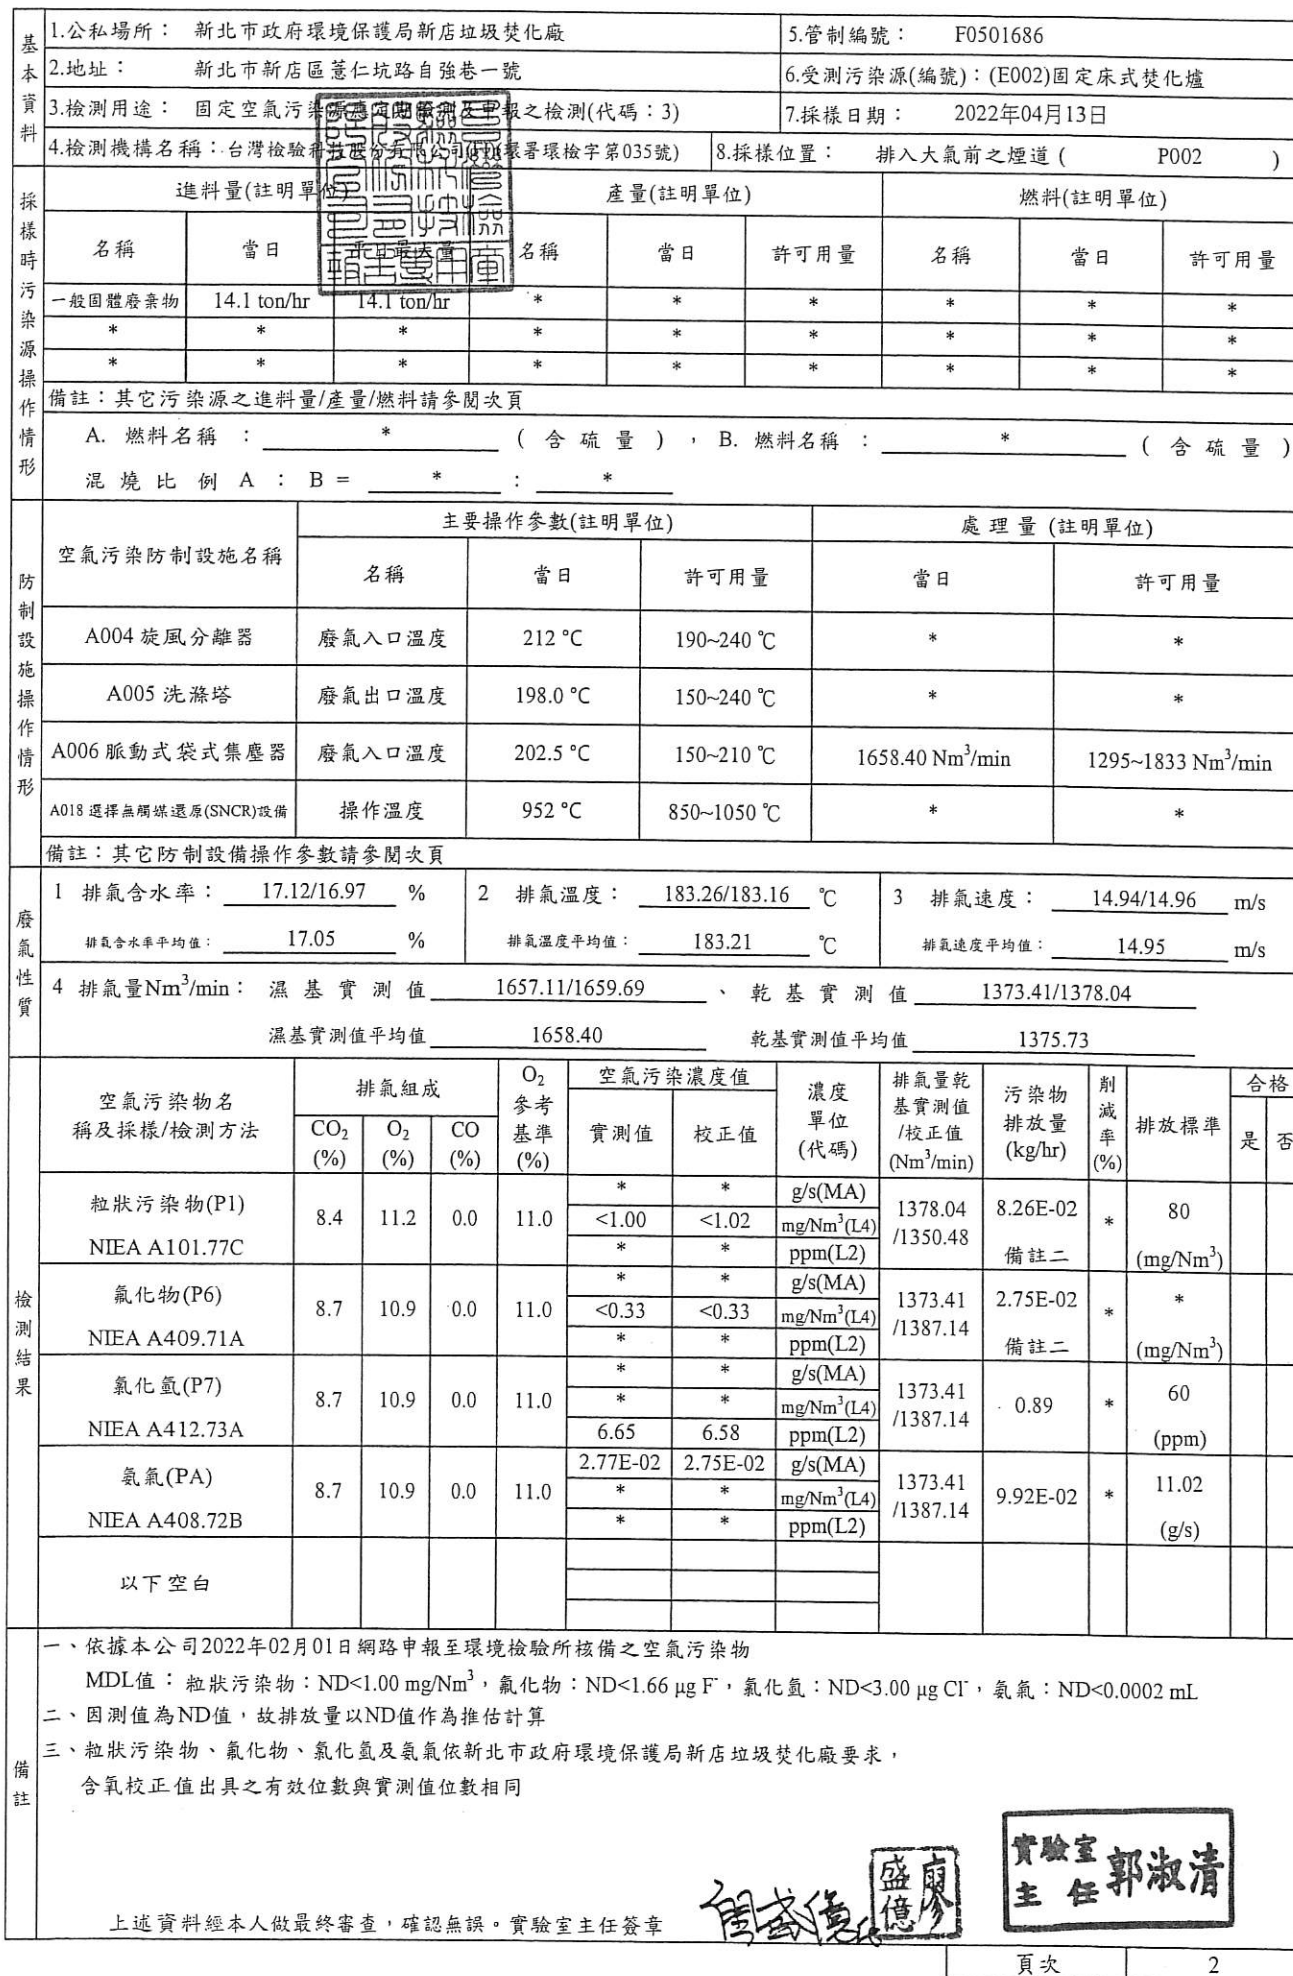 基本資料
1.公私場所： 新北市政府環境保護局新店垃圾焚化廠 5.管制編號： F0501686
2.地址： 新北市新店區薏仁坑路自強巷一號 6.受測污染源(編號)：(E002)固定床式焚化爐
3.檢測用途： 固定空氣污染源應定期檢測及申報之檢測(代碼：3) 7.採樣日期： 2022年04月13日
4.檢測機構名稱：台灣檢驗科技股份有限公司 環署環檢字第035號) 8.採樣位置： 排入大氣前之煙道 ( P002 )
採樣時污染源操作情形
進料量(註明單位) 產量(註明單位) 燃料(註明單位)
名稱 當日 平日最大量 名稱 當日 許可用量 名稱 當日 許可用量
一般固體廢棄物 14.1 ton/hr 14.1 ton/hr * * * * * *
* * * * * * * * *
* * * * * * * * *
備註：其它污染源之進料量/產量/燃料請參閱次頁
A. 燃料名稱 ： * ( 含 硫 量 ) ，B. 燃料名稱 ： * ( 含 硫 量 )
混 燒 比 例 A ： B = * : *
防制設施操作情形
空氣污染防制設施名稱 主要操作參數(註明單位) 處理量 (註明單位)
名稱 當日 許可用量 當日 許可用量
A004 旋風分離器 廢氣入口溫度 212 °C 190~240 ℃ * *
A005 洗滌塔 廢氣出口溫度 198.0 °C 150~240 ℃ * *
A006 脈動式袋式集塵器 廢氣入口溫度 202.5 °C 150~210 ℃ 1658.40 Nm³/min 1295~1833 Nm³/min
A018 選擇無觸媒還原(SNCR)設備 操作溫度 952 °C 850~1050 ℃ * *
備註：其它防制設備操作參數請參閱次頁
廢氣性質
1 排氣含水率： 17.12/16.97 % 2 排氣溫度： 183.26/183.16 ℃ 3 排氣速度： 14.94/14.96 m/s
排氣含水率平均值： 17.05 % 排氣溫度平均值： 183.21 ℃ 排氣速度平均值： 14.95 m/s
4 排氣量Nm³/min： 濕 基 實 測 值 1657.11/1659.69 、 乾 基 實 測 值 1373.41/1378.04
濕基實測值平均值 1658.40 乾基實測值平均值 1375.73
檢測結果
空氣污染物名稱及採樣/檢測方法 排氣組成 O₂參考基準(%) 空氣污染濃度值 濃度單位(代碼) 排氣量乾基實測值/校正值(Nm³/min) 污染物排放量(kg/hr) 削減率(%) 排放標準 合格
CO₂(%) O₂(%) CO(%) 實測值 校正值 是 否
粒狀污染物(P1) * * g/s(MA)
8.4 11.2 0.0 11.0 <1.00 <1.02 mg/Nm³(L4) 1378.04/1350.48 8.26E-02 * 80
NIEA A101.77C * * ppm(L2) 備註二 (mg/Nm³)
氟化物(P6) * * g/s(MA)
8.7 10.9 0.0 11.0 <0.33 <0.33 mg/Nm³(L4) 1373.41/1387.14 2.75E-02 * *
NIEA A409.71A * * ppm(L2) 備註二 (mg/Nm³)
氯化氫(P7) * * g/s(MA)
8.7 10.9 0.0 11.0 * * mg/Nm³(L4) 1373.41/1387.14 0.89 * 60
NIEA A412.73A 6.65 6.58 ppm(L2) (ppm)
氨氣(PA) 2.77E-02 2.75E-02 g/s(MA)
8.7 10.9 0.0 11.0 * * mg/Nm³(L4) 1373.41/1387.14 9.92E-02 * 11.02
NIEA A408.72B * * ppm(L2) (g/s)
以下空白
備註
一、依據本公司2022年02月01日網路申報至環境檢驗所核備之空氣污染物
MDL值：粒狀污染物：ND<1.00 mg/Nm³，氟化物：ND<1.66 μg F⁻，氯化氫：ND<3.00 μg Cl⁻，氨氣：ND<0.0002 mL
二、因測值為ND值，故排放量以ND值作為推估計算
三、粒狀污染物、氟化物、氯化氫及氨氣依新北市政府環境保護局新店垃圾焚化廠要求，
含氧校正值出具之有效位數與實測值位數相同
上述資料經本人做最終審查，確認無誤。實驗室主任簽章
廖盛億
實驗室主任 郭淑清
頁次 2